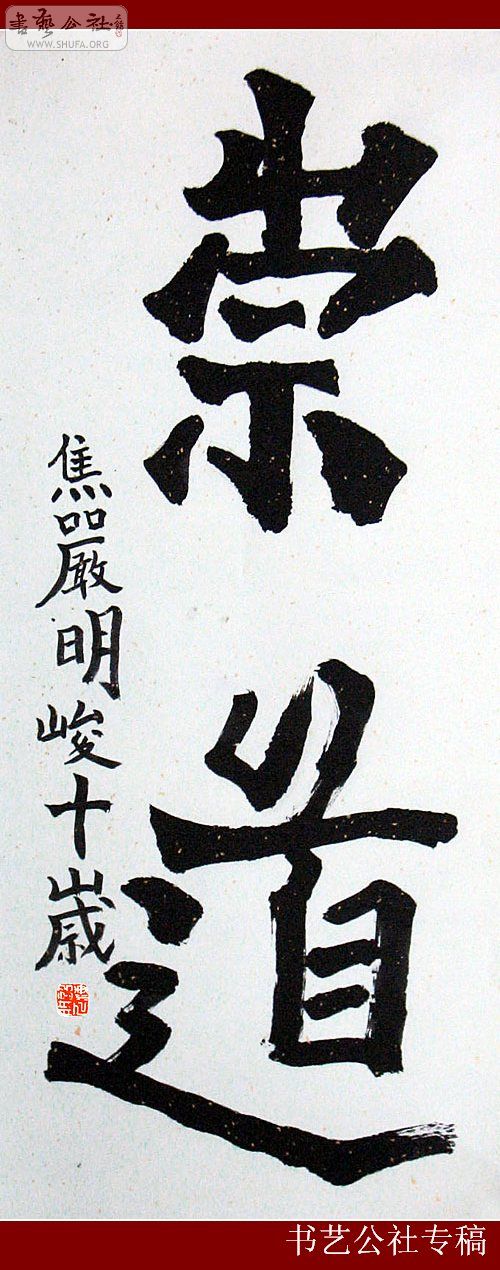 書藝公社
WWW.SHUFA.ORG
崇道
焦嚴明峻十歲
书艺公社专稿